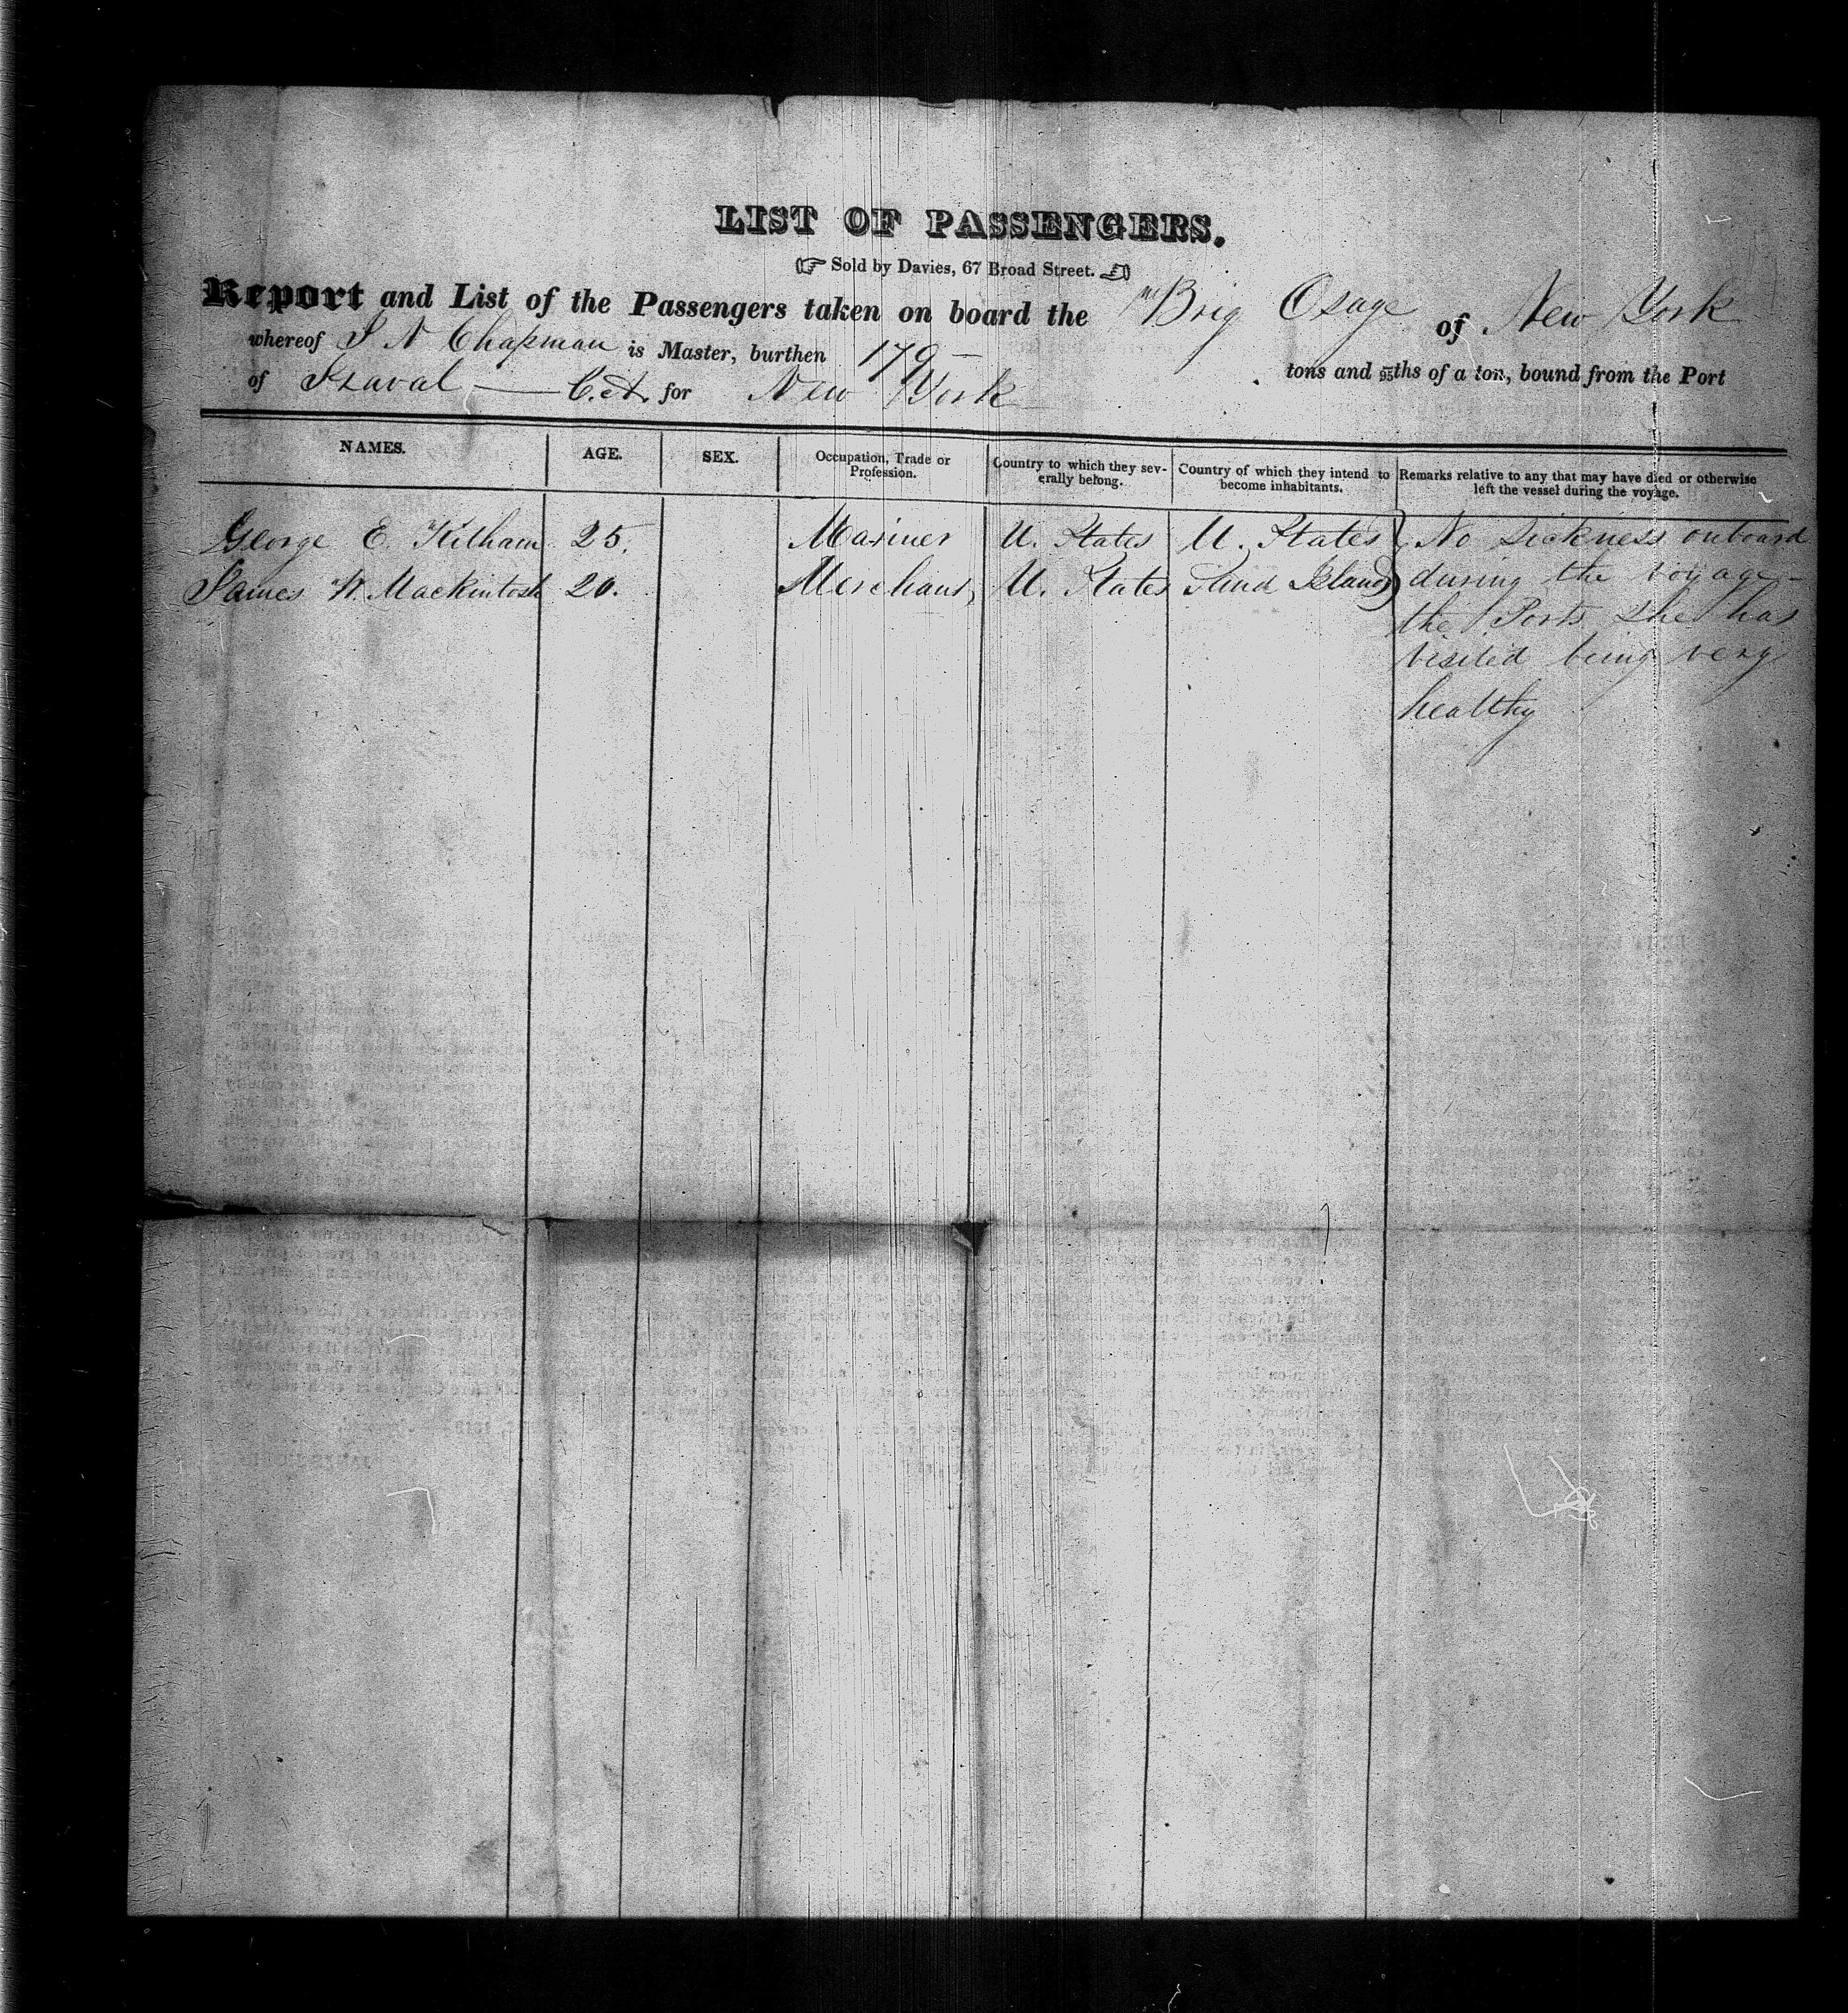 LIST OF PASSENGERS.
Sold by Davies, 67 Broad Street.
Report and List of the Passengers taken on board the Brig Osage of New York
whereof S N Chapman is Master, burthen 179 tons and 95ths of a ton, bound from the Port
of C.A. for New York
NAMES. AGE. SEX. Occupation, Trade or Profession. Country to which they severally belong. Country of which they intend to become inhabitants. Remarks relative to any that may have died or otherwise left the vessel during the voyage.
George E. Kilham 25. Mariner U. States U. States No Sickness onboard
James W. Mackintosh 20. Merchant, U. States Island during the voyage -
the Ports she has
visited being very
healthy